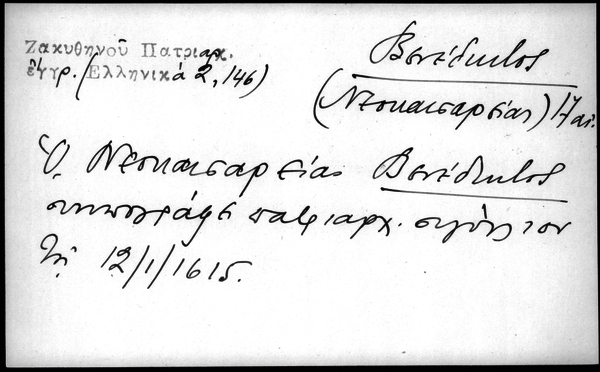 Ζακυθηνοῦ Πατριαρχ.
ἔγγρ. (Ἑλληνικά 2, 146)
Βενέδικτος
(Νεοκαισαρείας) 17 αἰ.
Ὁ Νεοκαισαρείας Βενέδικτος
συνυπογράφει πατριαρχ. σιγίλλιον
τῇ 12/1/1615.